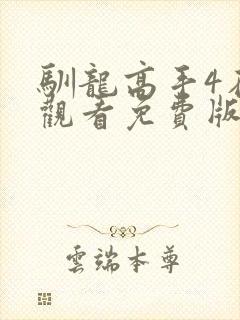 馴龍高手4在
觀看免費版
雲端本尊